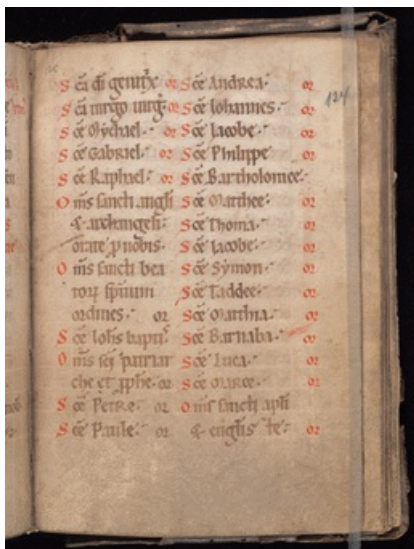 124
Scā dī genitx̄ or
Scā uirgo uirg̅ or
Sc̄e Mychael· or
Sc̄e Gabriel· or
Sc̄e Raphael· or
Om̄s sancti angli
& archangeli·
orate p nobis·
Om̄s sancti bea
torꝝ spirituum
ordines· or
Sc̄e Ioh̄is bapti·
Om̄s sc̄i patriar
che et pphe· or
Sc̄e Petre· or
Sc̄e Paule·
Sc̄e Andrea· or
Sc̄e Iohannes· or
Sc̄e Iacobe· or
Sc̄e Philippe or
Sc̄e Bartholomee·
Sc̄e Matthee· or
Sc̄e Thoma· or
Sc̄e Iacobe· or
Sc̄e Symon· or
Sc̄e Taddee· or
Sc̄e Matthia· or
Sc̄e Barnaba· or
Sc̄e Luca· or
Sc̄e Marce· or
Om̄s sancti apl̄i
& eu̅glis̄ te· or